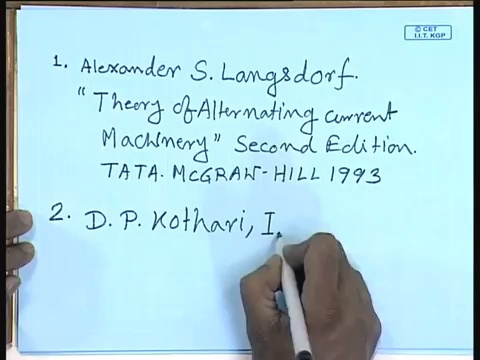 © CET
I.I.T. KGP
1. Alexander S. Langsdorf.
"Theory of Alternating current
Machinery" Second Edition.
TATA. McGRAW-HILL 1993
2. D. P. Kothari, I.